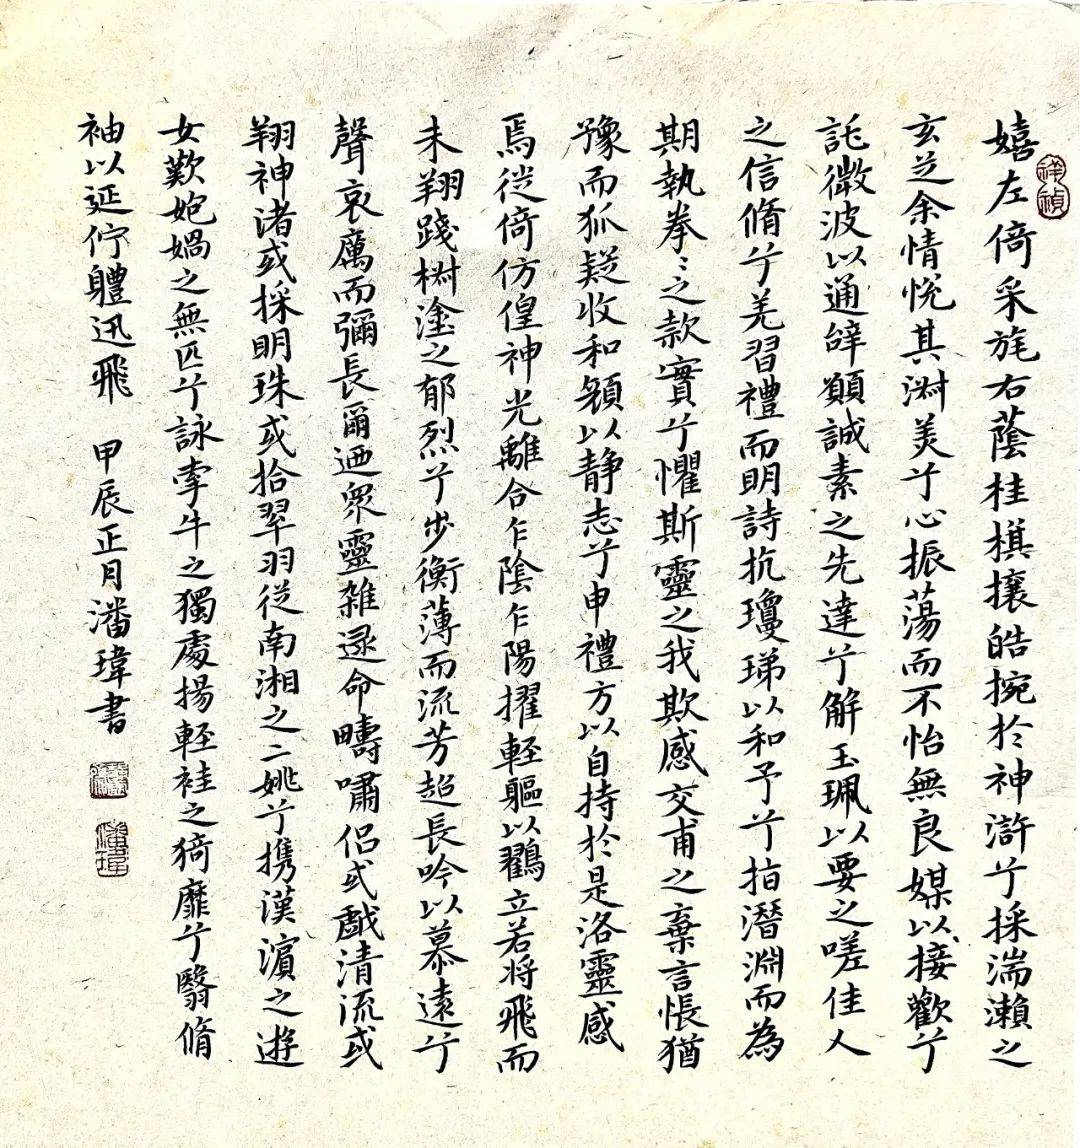 祥禎
嬉左倚采旄右蔭桂棋攘皓捥於神滸兮採湍瀨之
玄芝余情悅其淑美兮心振蕩而不怡無良媒以接歡兮
託微波以通辭願誠素之先達兮解玉珮以要之嗟佳人
之信脩兮羌習禮而明詩抗瓊珶以和予兮指潛淵而為
期執拳〻之款實兮懼斯靈之我欺感交甫之棄言悵猶
豫而狐疑收和顏以静志兮申禮方以自持於是洛靈感
焉徙倚仿偟神光離合乍陰乍陽擢輕軀以鶴立若将飛而
未翔踐椒塗之郁烈兮步衡薄而流芳超長吟以慕遠兮
聲哀厲而彌長爾迺衆靈雜遝命疇嘯侣或戲清流或
翔神渚或採明珠或拾翠羽從南湘之二姚兮攜漢濱之遊
女歎匏媧之無匹兮詠牽牛之獨處揚輕袿之猗靡兮翳脩
袖以延佇體迅飛 甲辰正月潘瑋書
潘瑋